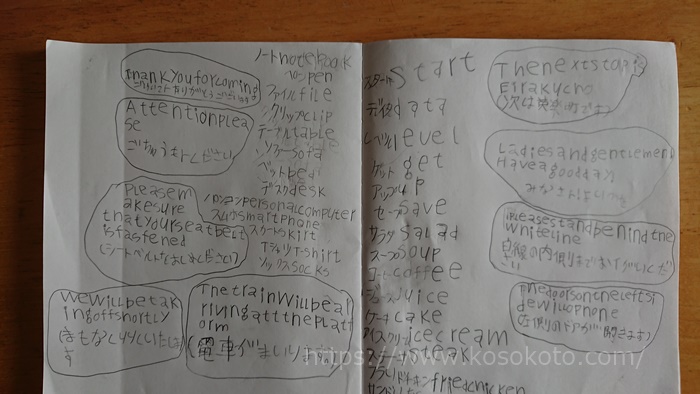 Thankyouforcoming
Attentionplea
se
ごちゅうもくください
pleasem
akesure
thatyourseatbelt
isfastened
(シートベルト
wewillbetak
ingoffshortly
(まもなくりりくいたしま
す
Thetrainwillbeal
rivingattheplatf
orm
(電車がまいります)
ノートnotebook
ペンpen
ファイルfile
クリップclip
テーブルtable
ソファーsofa
ベットbed
デスクdesk
パソコンpersonalcomputer
スマホsmartphone
スカートskilt
TシャツT-shirt
ソックスsocks
スタートstart
データdata
レベルlevel
ゲットget
アップup
セーブsave
サラダsalad
スープsoup
コーヒーcoffee
ジュースjuice
ケーキcake
アイスクリームicecream
steak
フライドチキンfriedchicken
Thenextstopis
Eirakucho
(次は永楽町です)
Ladiesandgentlemen
Haveagoodday
みなさん
pleasestandbehindthe
whiteline
白線の内側までおさがりくだ
さい
thedoorsontheleftsi
dewillopen
(左側のドアが開きます)
https://www.kosokoto.com/